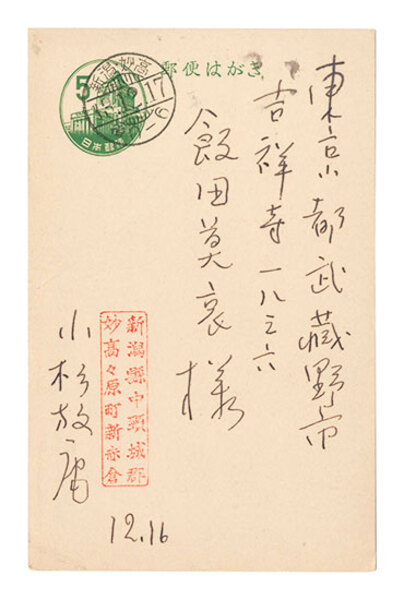 郵便はがき
5
日本郵便
新潟妙高
東京都武蔵野市
吉祥寺一八三六
飯田莫哀様
新潟縣中頸城郡
妙高々原町新赤倉
小杉放庵
12.16